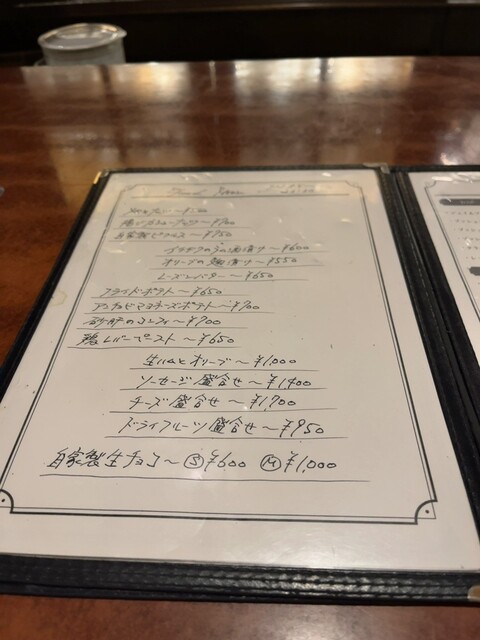 Food Menu
自家製ピクルス〜¥750
オリーブの麹漬け〜¥550
レーズンバター〜¥650
フライドポテト〜¥650
アンチョビマヨネーズポテト〜¥700
砂肝のコンフィ〜¥700
鶏レバーペースト〜¥650
生ハムとオリーブ〜¥1,000
ソーセージ盛合せ〜¥1400
チーズ盛合せ〜¥1,700
ドライフルーツ盛合せ〜¥950
自家製生チョコ〜Ⓢ¥600 Ⓜ¥1,000